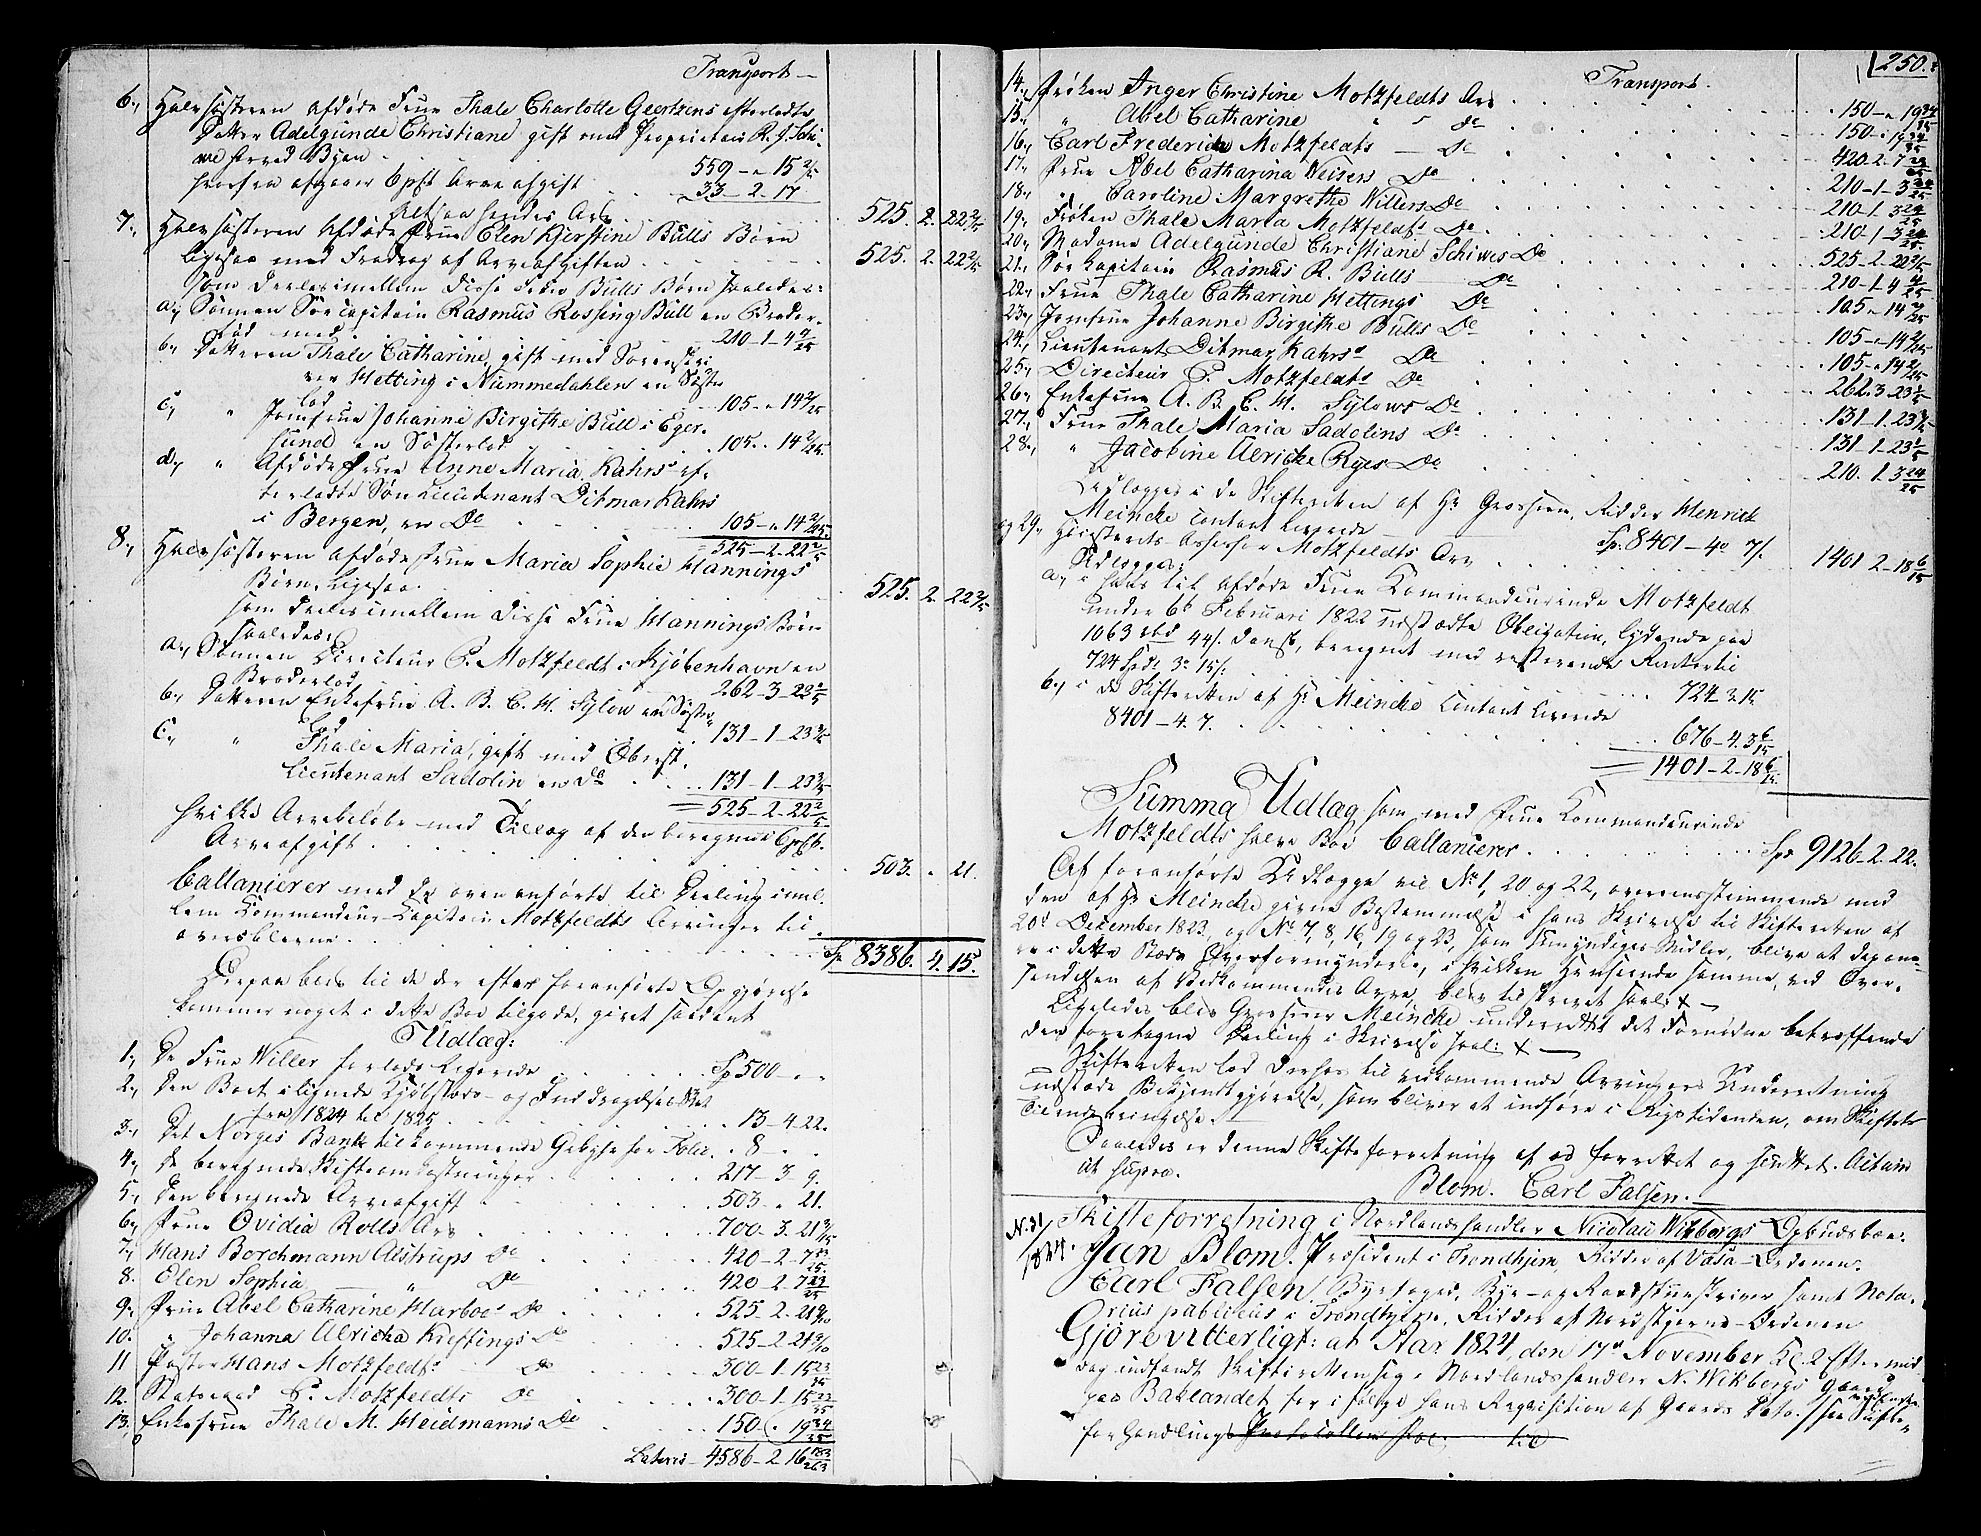 Transport —
6, Halvsøsteren afdøde Frue Thale Charlotte Geertzens efterladte
Datter Adelgunde Christiane, gift med Proprietair R. J. Schi-
we herved Byen .
559 - " 15 2/5
herfra afgaaer 6 pCt Arveafgift
33 - 2 - 17
altsaa hendes Arv . . . 525. 2. 22 2/5
7, Halvsøsteren Afdøde Frue Elen Kjerstine Bulls Børn
ligesaa med Fradrag af Arveafgiften . . . 525. 2. 22 2/5
som deeles imellem disse Bulls Børn saaledes:
a, Sønnen Søecapitain Rasmus Rossing Bull en Broder-
lod med . . . 210 - 1 - 4 4/25
b, Datteren Thale Catharine, gift med Sorenskri
ver Hetting i Nummedahlen en Søster
lod . . . 105 - " 14 2/25
c, " Jomfrue Johanne Birgithe Bull i Eger-
sund en Søsterlod . . . 105. " 14 2/25
d, " Afdøde Frue Anne Maria Kahrs ef-
terladte Søn Lieutenant Ditmar Kahrs
i Bergen, en Do . . . 105 - " 14 2/25
525 - 2 - 22 2/5
8, Halvsøsteren afdøde Frue Maria Sophie Hannings
Børn, ligesaa . . . 525. 2. 22 2/5
som deeles imellem disse Frue Hannings Børn
saaledes:
a, Sønnen Directeur P. Motzfeldt i Kjøbenhavn en
Broderlod . . . 262 - 3 - 23 1/5
b, Datteren Enkefrue A. B. C. H. Sylow en Søster
lod . . . 131 - 1 - 23 3/5
c, " Thale Maria, gift med Oberst-
Lieutenant Sadolin en Do . . . 131 - 1 - 23 3/5
525 - 2 - 22 2/5
hvilke Arvebeløbe med Tillæg af den beregnede 6 pCt
Arveafgift . . . 503. " 21.
ballancerer med de ovenanførte til Deeling imel-
lem Commandeur-Capitain Motzfeldts Arvinger til-
overblevne . . . Sp 8386. 4. 15.
Herpaa blev til de der efter foranførte Opgjørelse
kommer noget i dette Boe tilgode, gjort saadant
Udlæg:
1, De Frue Willer forlods Legerede . . . Sp 500 - " "
2, Den Boet ilignede Kjøbstads- og Inddragelses Skat
fra 1824 til 1825 . . . 13 - 4 22.
3, Det Norges Bank tilkommende Gebyhr for Folii . 8 " "
4, De beregnede Skifteomkostninger . . . 217 - 3 9.
5, Den beregnede Arveafgift . . . 503 " 21.
6, Frue Ovidia Rolls Arv . . . 700 - 3. 21 3/5
7, Hans Borchmann Alstrups Do . . . 420 - 2 - 7 23/25
8. Elen Sophia " Do . . . 420 - 2. 7 23/25
9, Frue Abel Catharine Harboe's Do . . . 525 - 2. 21 9/10
10. " Johanna Ulricha Kieftings Do . . . 525 - 2 21 9/10
11 Pastor Hans Motzfeldts Do . . . 300 - 1 - 15 23/25
12. Statsraad P. Motzfeldts Do . . . 300 - 1 - 15 23/25
13, Enkefrue Thale M. Heidmanns Do . . . 150 " 19 24/25
Lateris - 4586 - 2 16 183/263
250.
Transport.
14, Frøken Inger Christine Motzfeldts Arv . . . 150 - " 19 24/25
15, " Abel Catharine " " Do . . . 150 - " 19 24/25
16, Carl Frederich Motzfeldts — Do . . . 420. 2. 7 23/25
17, Frue Abel Catharina Weisers Do . . . 210 - 1 - 3 24/25
18, " Caroline Margrethe Willers Do . . . 210 - 1. 3 24/25
19, Frøken Thale Maria Motzfeldts Do . . . 210 - 1 - 3 24/25
20, Madame Adelgunde Christiane Schiwes Do . . . 525 - 2 - 22 2/5
21, Søe Capitain Rasmus R. Bulls Do . . . 210 - 1 - 4 4/25
22, Frue Thale Catharine Hettings Do . . . 105 " 14 2/25
23, Jomfrue Johanne Birgithe Bulls Do . . . 105 - " 14 2/25
24, Lieutenant Ditmar Kahrs' Do . . . 105 - " 14 2/25
25, Directeur P. Motzfeldts Do . . . 262. 3 - 23 1/5
26, Enkefrue A. B. C. H. Sylows Do . . . 131 - 1 - 23 3/5
27, Frue Thale Maria Sadolins Do . . . 131 - 1 - 23 3/5
28, " Jacobine Ulricke Ryes Do . . . 210. 1. 3 24/25
Udlægges i de Skifteretten af Hr Grosserer, Ridder Henrich
Meincke contant leverede . . . Sp: 8401 - 4 " 7/.
og 29, Høiesterets Assessor Motzfeldts Arv . . . 1401 2 - 18 6/15
Udlægges:
a, i hans til afdøde Frue Commandeurinde Motzfeldt
under 6te Februari 1822 udstædte Obligation, lydende paa
1063 rbd 44/. dansk, beregnet med resterende Renter til
724 Spd. 3 " 15/: . . . 724. 3. 15
b, i de Skifteretten af Hr Meincke contant leverede
8401 - 4. 7. . . . 676 - 4. 3 6/15
1401 - 2 - 18 6/15
Summa Udlæg som med Frue Commandeurinde
Motzfeldts halve Boe ballancerer . . . Spd 9126. 2. 22.
Af foranførte Udlægge vil No 1, 20 og 22, overeensstemmende med
den af Hr Meincke givne Bestemmelse i hans Skrivelse til Skifteretten af
20de December 1823, og No 7, 8, 16, 19 og 23, som umyndiges Midler, blive at depone-
re i dette Steds Overformynderie, i hvilken Henseende samme, ved Over-
sendelsen af Vedkommendes Arve, blev tilskrevet saal: X —
Ligeledes blev Grosserer Meincke underrettet det Fornødne betræffende
den foretagne Deeling i Skrivelse saal: X —
Skifteretten lod derhos til vedkommende Arvingers Underretning
udstæde Bekjendtgjørelse, som bliver at indføre i Rigstidenden, om Skiftets
Tilendebringelse. —
Saaledes er denne Skifteforretning af os forrettet og sluttet. Actum
ut supra.
Blom. Carl Falsen.
No. 31/1824. Skifteforretning i Nordlandshandler Nicolai Wikborgs Opbudsboe:
Jan Blom, Præsident i Trondhjem, Ridder af Vasa-Ordenen.
Carl Falsen, Byefoged, Bye- og Raadstueskriver samt Nota-
rius publicus i Trondhjem, Ridder af Nordstjerne-Ordenen
Gjøre vitterligt: at Aar 1824, den 17de November Kl. 2 Eftermid
dag indfandt Skifteretten sig i Nordlandshandler N. Wikborgs Gaard
paa Baklandet, for i følge hans Reqvisition af Gaars Dato
forhandlings Protocollen